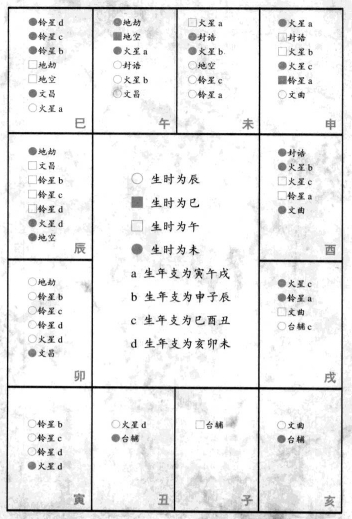 ●铃星 d
●铃星 c
●铃星 b
□地劫
□地空
●文昌
○火星 a
巳
●地劫
■地空
●火星 a
○封诰
○火星 b
○文昌
午
□火星 a
●封诰
●火星 b
○地空
○铃星 c
○铃星 a
未
●火星 a
□封诰
□火星 b
●火星 c
■铃星 a
○文曲
申
●地劫
□文昌
□铃星 b
□铃星 c
□铃星 d
●火星 d
●地空
辰
○ 生时为辰
■ 生时为巳
□ 生时为午
● 生时为未
a 生年支为寅午戌
b 生年支为申子辰
c 生年支为巳酉丑
d 生年支为亥卯未
●封诰
●火星 b
□火星 c
□铃星 a
●文曲
酉
○地劫
○铃星 b
○铃星 c
○铃星 d
○火星 d
●文昌
卯
●火星 c
●铃星 a
□文曲
○台辅 c
戌
○铃星 b
○铃星 c
○铃星 d
●火星 d
寅
○火星 d
●台辅
丑
□台辅
子
○文曲
●台辅
亥